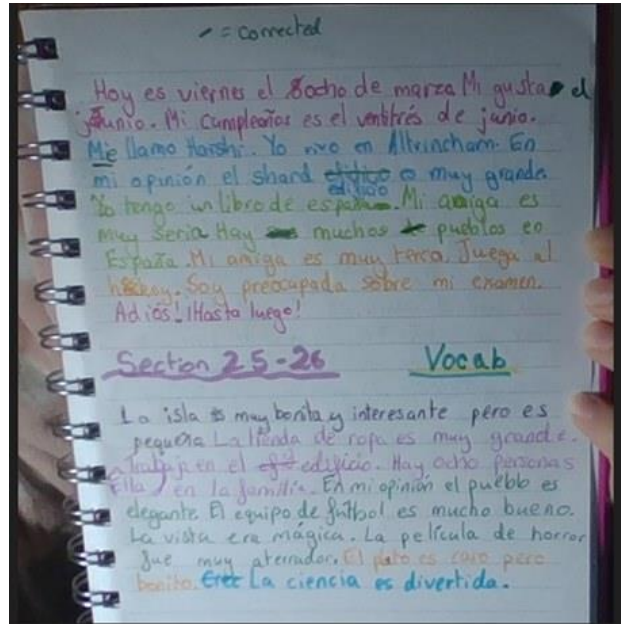 = corrected
Hoy es viernes el ocho de marzo Mi gusta el
junio. Mi cumpleaños es el ventitrés de junio.
Me llamo Harshi. Yo vivo en Altrincham. En
mi opinión el shard edificio es muy grande.
Yo tengo un libro de español. Mi amiga es
muy seria Hay muchos pueblos en
España. Mi amiga es muy terca. Juega al
hockey. Soy preocupada sobre mi examen.
Adiós! ¡Hasta luego!
Section 25-26 Vocab
La isla es muy bonita y interesante pero es
pequeña La tienda de ropa es muy grande.
Ella trabaja en el edificio. Hay ocho personas
en la familia. En mi opinión el pueblo es
elegante El equipo de fútbol es mucho bueno.
La vista era mágica. La película de horror
fue muy aterrador. El plato es caro pero
bonito. La ciencia es divertida.